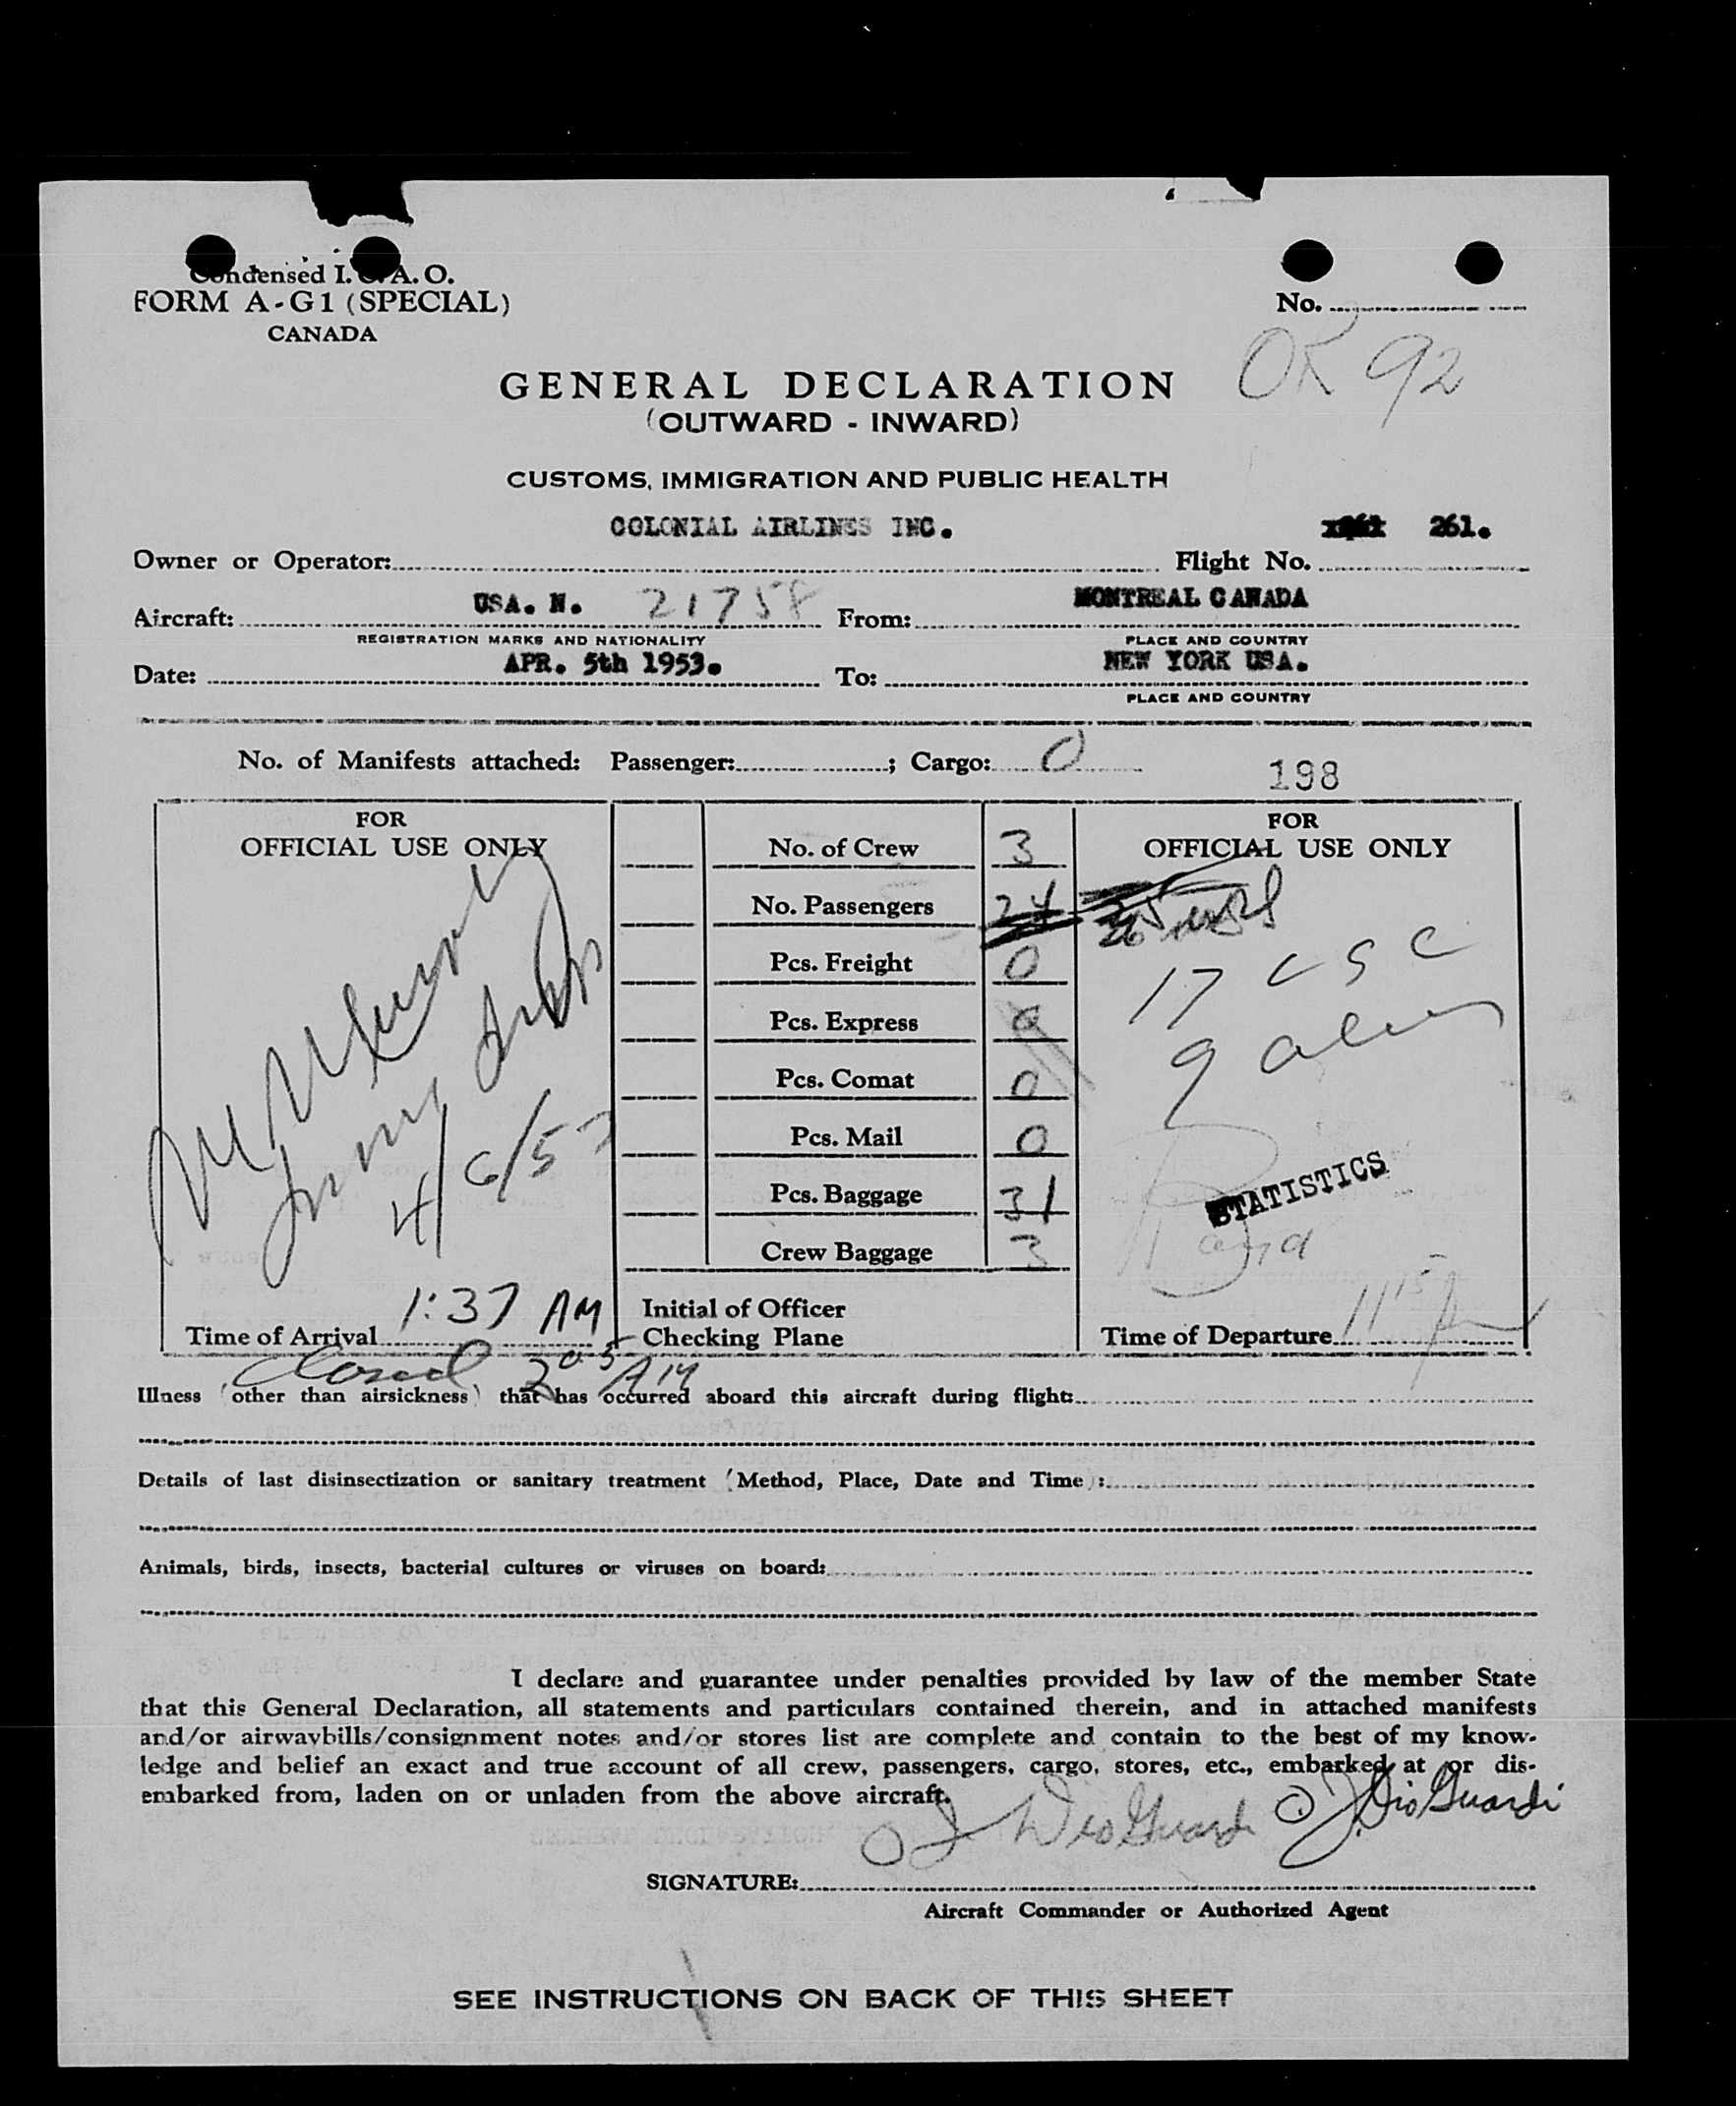 Condensed I.C.A.O.
FORM A-G1 (SPECIAL)
CANADA
No.
OK 92
GENERAL DECLARATION
(OUTWARD - INWARD)
CUSTOMS, IMMIGRATION AND PUBLIC HEALTH
COLONIAL AIRLINES INC. 261.
Owner or Operator: Flight No.
USA. N. 21758 MONTREAL CANADA
Aircraft: From:
REGISTRATION MARKS AND NATIONALITY PLACE AND COUNTRY
APR. 5th 1953. NEW YORK USA.
Date: To:
PLACE AND COUNTRY
No. of Manifests attached: Passenger: ; Cargo: 0
198
FOR
OFFICIAL USE ONLY
4/6/53
1:37 AM
Time of Arrival
Closed 2 05 AM
No. of Crew 3
No. Passengers 24
Pcs. Freight 0
Pcs. Express 0
Pcs. Comat 0
Pcs. Mail 0
Pcs. Baggage 31
Crew Baggage 3
Initial of Officer
Checking Plane
FOR
OFFICIAL USE ONLY
17 USC
9 aliens
STATISTICS
Time of Departure 11 15
Illness (other than airsickness) that has occurred aboard this aircraft during flight:
Details of last disinsectization or sanitary treatment (Method, Place, Date and Time):
Animals, birds, insects, bacterial cultures or viruses on board:
I declare and guarantee under penalties provided by law of the member State
that this General Declaration, all statements and particulars contained therein, and in attached manifests
and/or airwaybills/consignment notes and/or stores list are complete and contain to the best of my know-
ledge and belief an exact and true account of all crew, passengers, cargo, stores, etc., embarked at or dis-
embarked from, laden on or unladen from the above aircraft.
O J DioGuardi O. J. DioGuardi
SIGNATURE:
Aircraft Commander or Authorized Agent
SEE INSTRUCTIONS ON BACK OF THIS SHEET